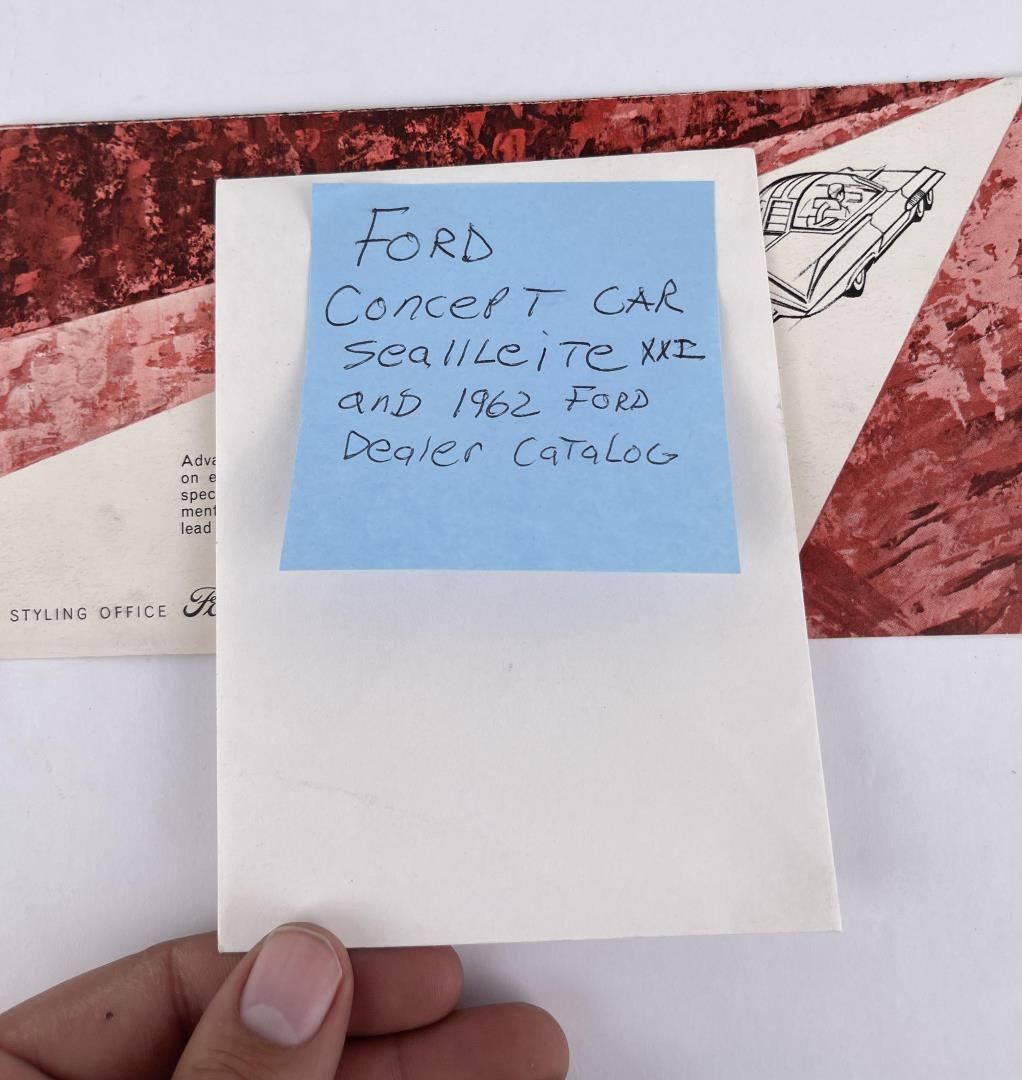 FORD
Concept CAR
SeallLeiTe XXI
and 1962 FORD
Dealer Catalog
Adva
on e
spec
ment
lead
STYLING OFFICE